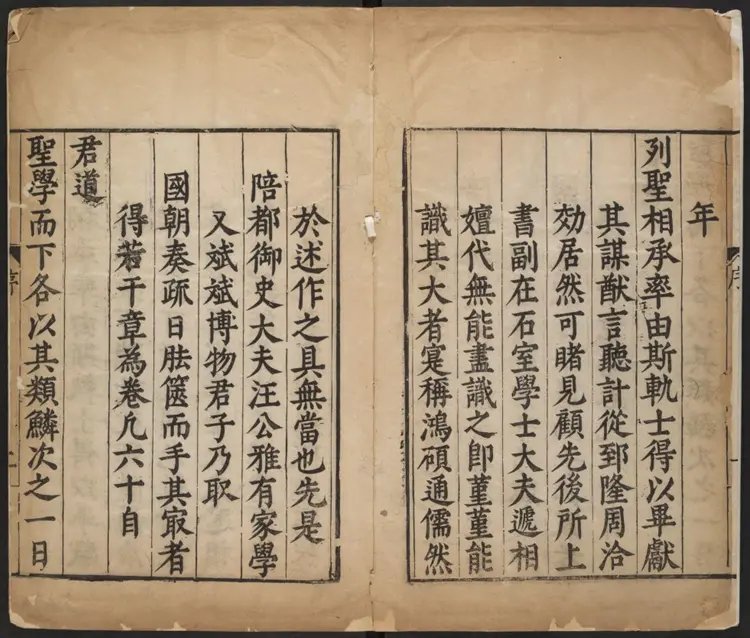 年
列聖相承率由斯軌士得以畢獻
其謀猷言聽計從郅隆周洽
効居然可睹見顧先後所上
書副在石室學士大夫遞相
嬗代無能盡識之即菫菫能
識其大者寔稱鴻碩通儒然
於述作之具無當也先是
陪都御史大夫汪公雅有家學
又斌斌博物君子乃取
國朝奏疏日胠篋而手其㝡者
得若干章為卷凡六十自
君道
聖學而下各以其類鱗次之一日
序